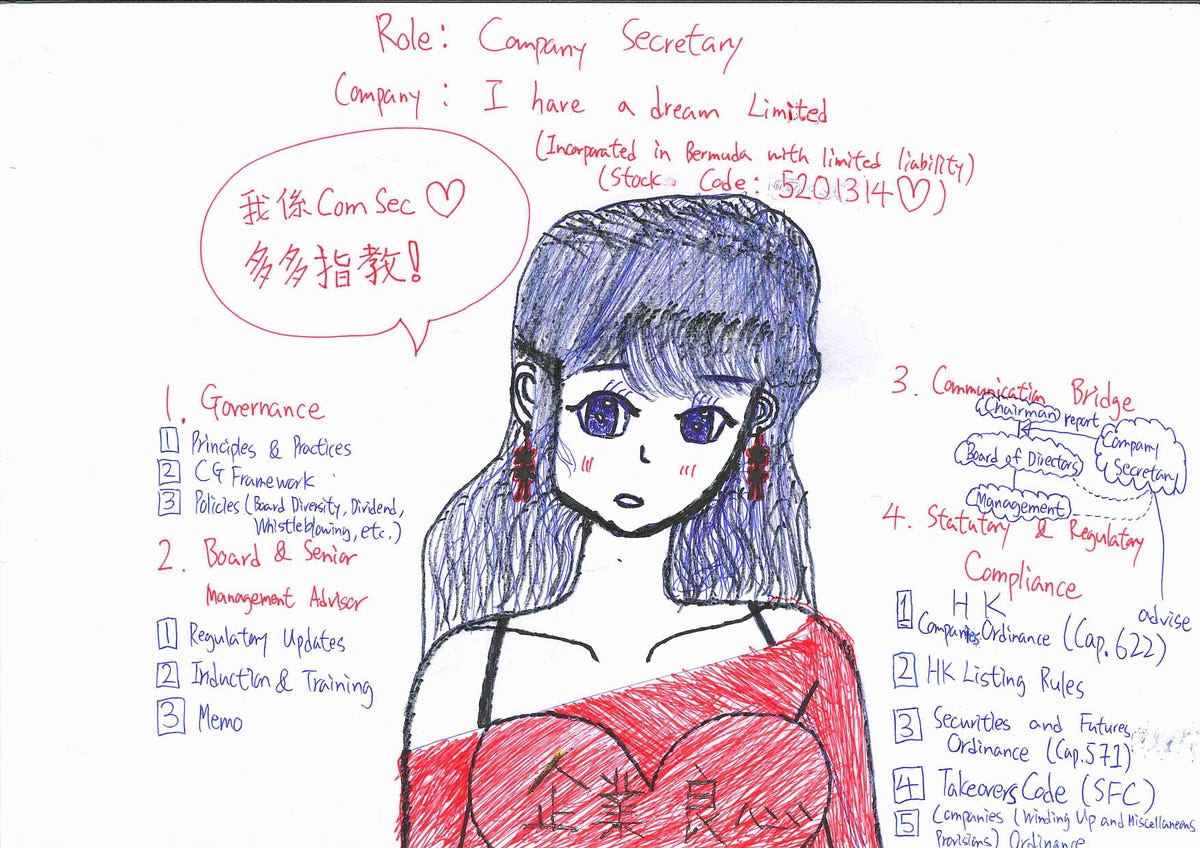 Role: Company Secretary
Company: I have a dream Limited
(Incorporated in Bermuda with limited liability)
(Stock Code: 5201314♡)
我係ComSec♡
多多指教!
1. Governance
1 Principles & Practices
2 CG Framework
3 Policies (Board Diversity, Dividend,
Whistleblowing, etc.)
2. Board & Senior
Management Advisor
1 Regulatory Updates
2 Induction & Training
3 Memo
3. Communication Bridge
Chairman
report
Company
Secretary
Board of Directors
Management
advise
4. Statutory & Regulatory
Compliance
1 HK
Companies Ordinance (Cap.622)
2 HK Listing Rules
3 Securities and Futures
Ordinance (Cap.571)
4 Takeovers Code (SFC)
5 Companies (Winding Up and Miscellaneous
Provisions) Ordinance
企業良心